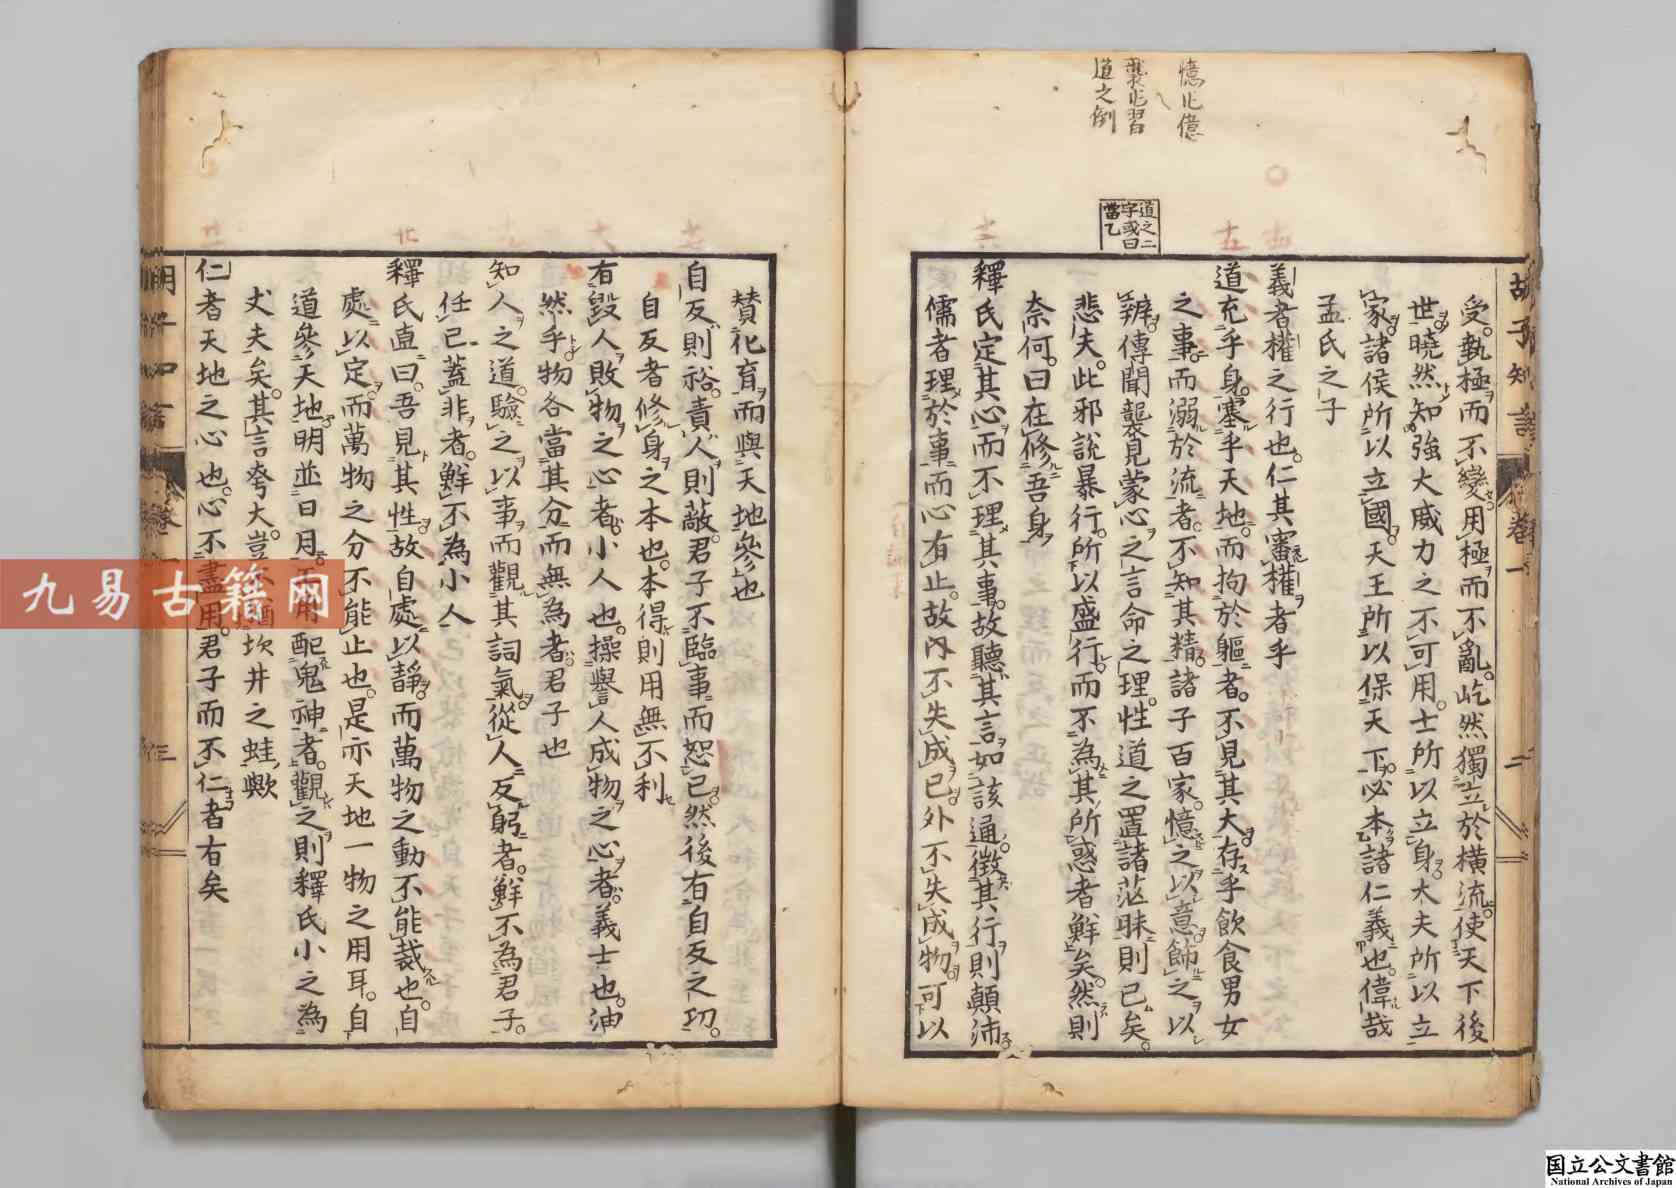 憶化億
襲化習
道之倒
道之二
字或曰
當乙
胡子知言 卷一 二
受執極而不變用極而不亂屹然獨立於横流使天下後
世曉然知強大威力之不可用士所以立身大夫所以立
家諸侯所以立國天王所以保天下必本諸仁義也偉哉
孟氏之子
義者權之行也仁其審權者乎
道充乎身塞乎天地而拘於軀者不見其大存乎飲食男女
之事而溺於流者不知其精諸子百家憶之以意飾之以
辨傳聞襲見蒙心之言命之理性道之置諸茫昧則已矣
悲夫此邪說暴行所以盛行而不為其所惑者鮮矣然則
奈何曰在修吾身
釋氏定其心而不理其事故聽其言如該通徵其行則顛沛
儒者理於事而心有止故內不失成已外不失成物可以
賛化育而與天地參也
自反則裕責人則蔽君子不臨事而恕已然後有自反之功
自反者修身之本也本得則用無不利
有毀人敗物之心者小人也操譽人成物之心者義士也油
然乎物各當其分而無為者君子也
知人之道驗之以事而觀其詞氣從人反躬者鮮不為君子
任已蓋非者鮮不為小人
釋氏直曰吾見其性故自處以靜而萬物之動不能裁也自
處以定而萬物之分不能止也是亦天地一物之用耳自
道參天地明並日月用配鬼神者觀之則釋氏小之為
丈夫矣其言夸大豈坎井之蛙歟
仁者天地之心也心不盡用君子而不仁者有矣
九易古籍网
国立公文書館
National Archives of Japan